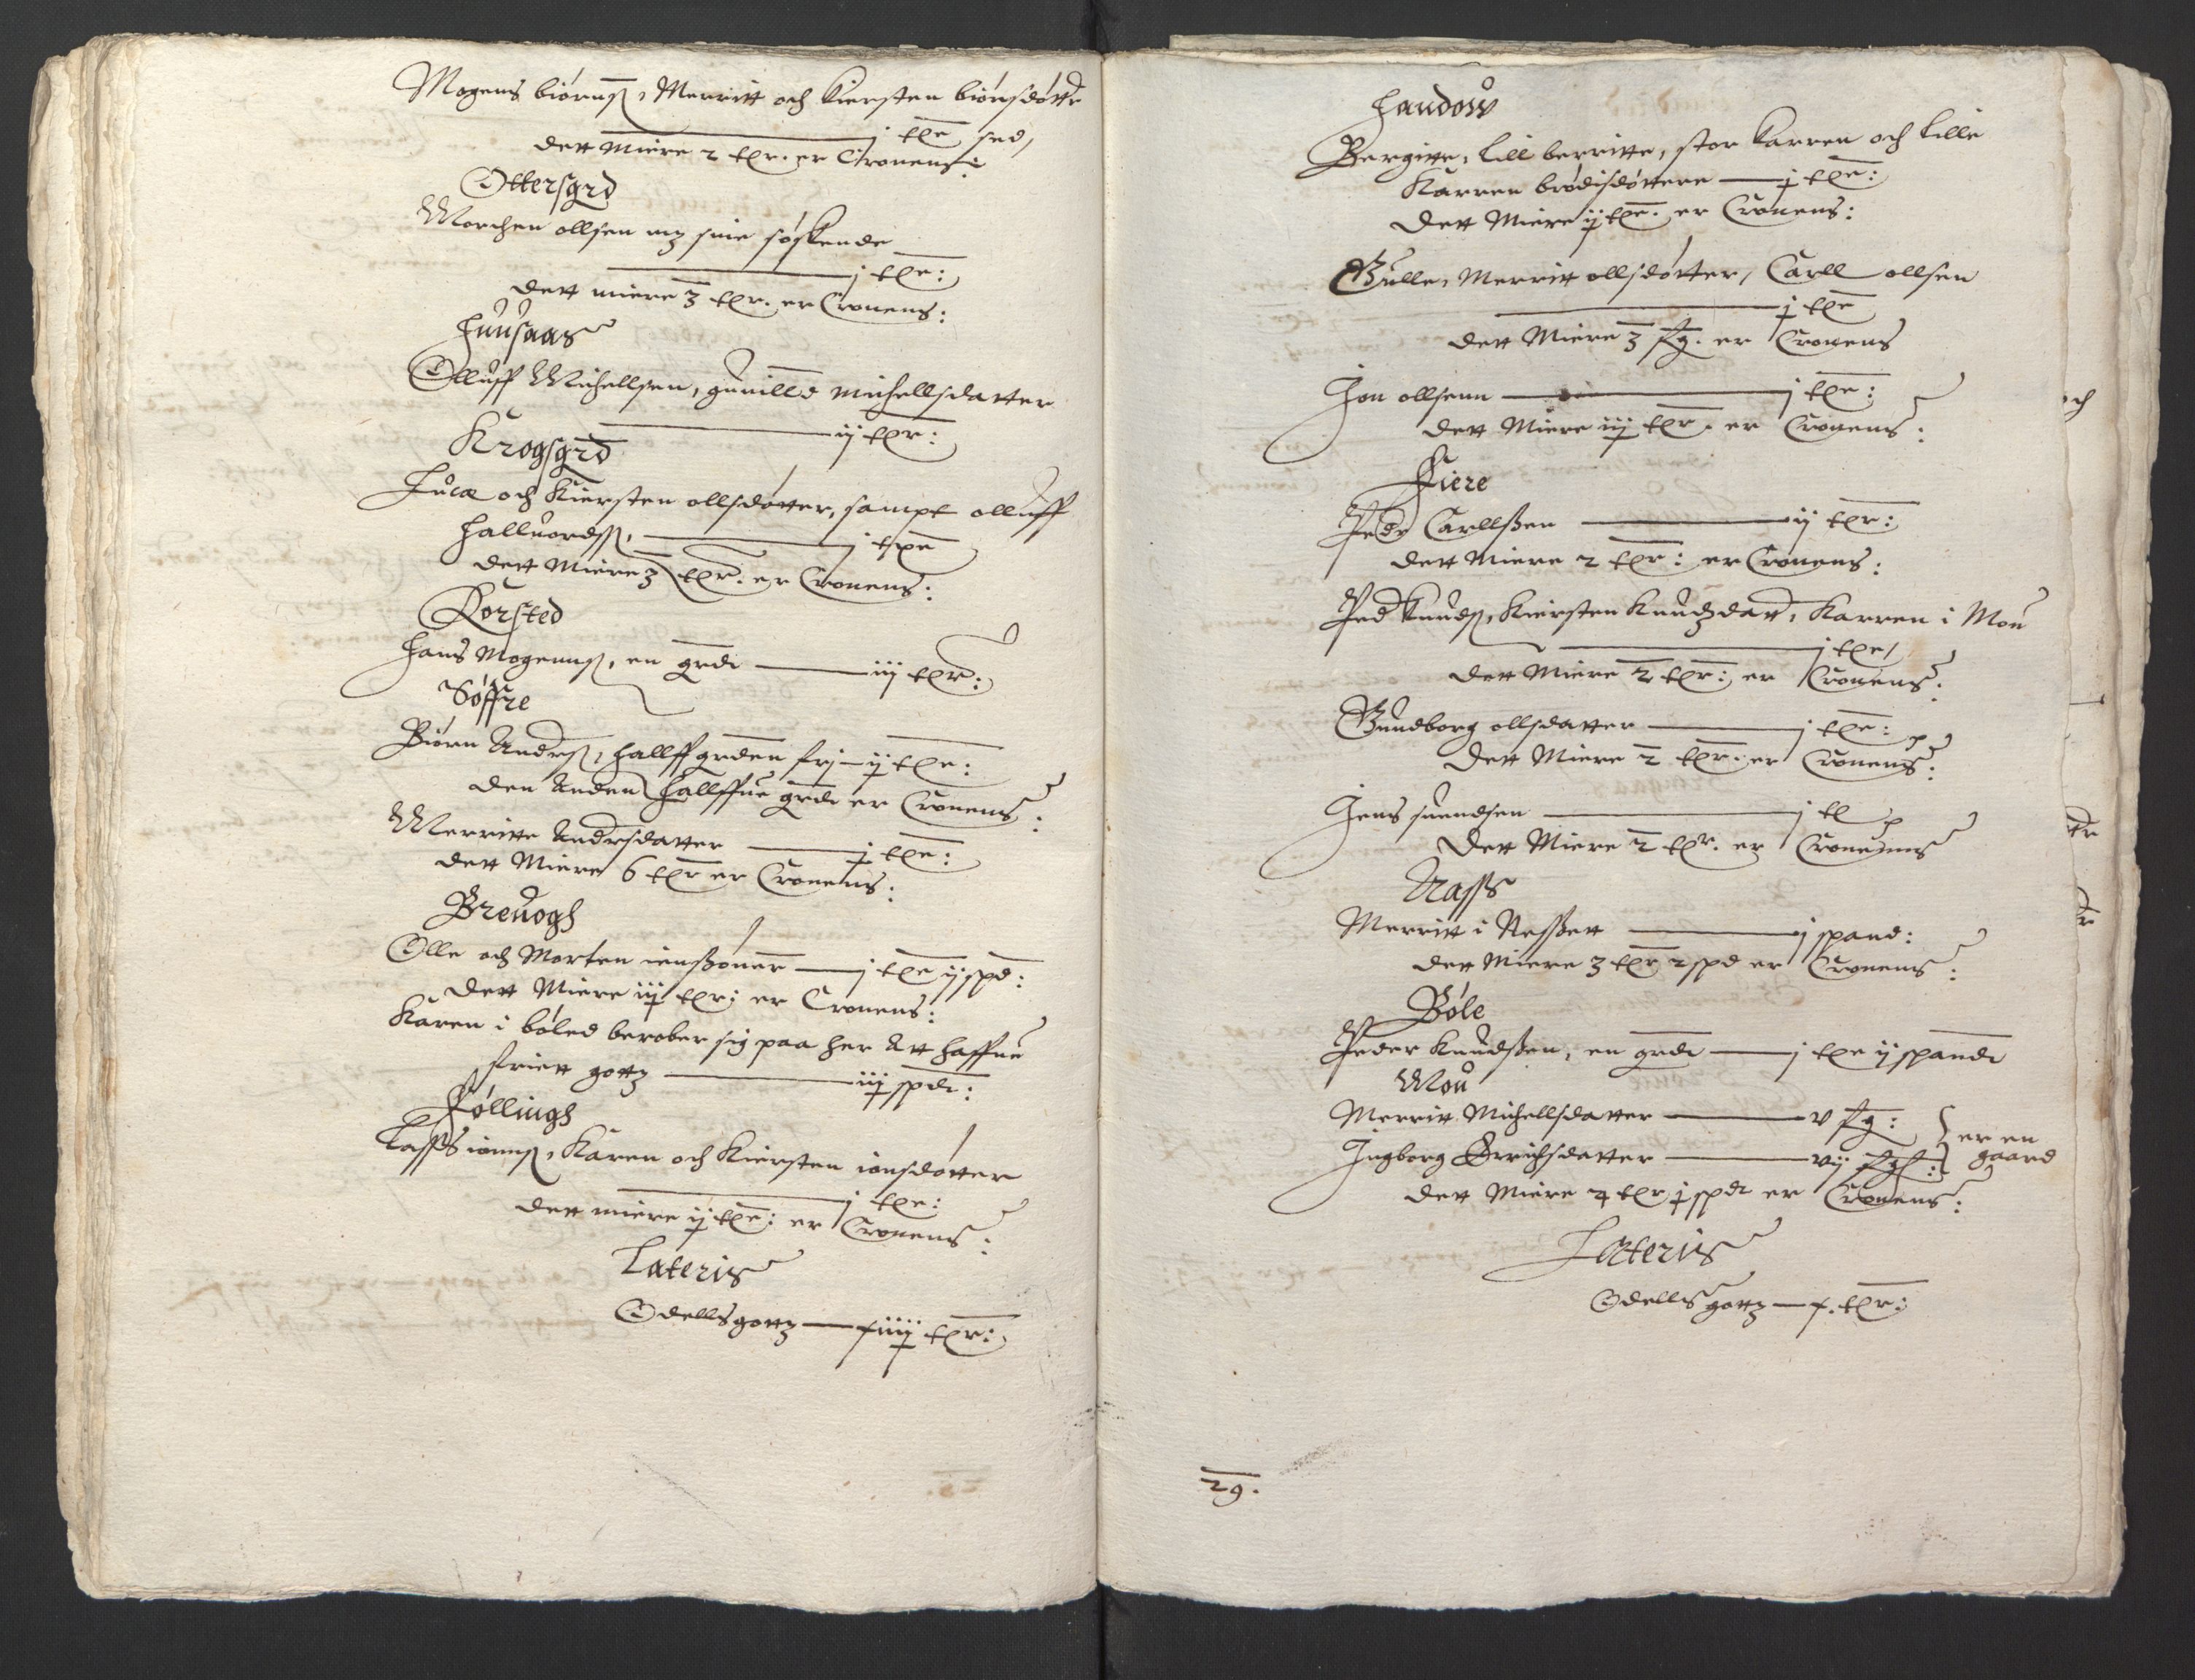 Mogens biørnß, Merritt och Kiersten biørsdøttr
j tøe sed,
dett miere 2 tør. er Cronens:
Ottersgrd
Morchen ollsen mz sine søskende
j tøe:
dett miere 3 tør. er Cronens:
Huusaas
Olluff Michellsen, gunilld michellsdatter
ij tør:
Krogsgrd
Lucæ och Kiersten ollsdøtter, sampt olluff
halluordß, j tøe
dett Miere 3 tør. er Cronens:
Korsted
Hans Mogennß, en grd iij tør:
Søffre
Biørn Andrß, hallff grden frj ij tøe:
den Anden hallffue grd er Cronens:
Merritte Andrsdatter j tøe:
dett Miere 6 tør er Cronens:
Breuogh
Olle och Morten iensßønner j tøe ij spd:
dett Miere iij tør: er Cronens:
Karen i bøled berober sig paa her Att haffue
friett gottz iij spd:
Føllingh
Lasse ionnß, Karen och Kiersten ionsdøtter
j tøe:
dett miere ij tøe: er Cronens:
Lateris
Odellsgottz xiiij tør:
Handow
Bergitte, Lill berritte, stor Karren och Lille
Karren brødisdøttere j tøe:
dett Miere ij tøe. er Cronens:
Gulle, Merritt ollsdøtter, Carll ollsen
j tøe
dett Miere 3 sg. er Cronens
Jon ollsenn j tøe:
dett Miere iij tør. er Cronens:
Kiere
Pedr Carllßen ij tør:
dett Miere 2 tør: er Cronens:
Ped Knudß, Kiersten Knudzdatt, Karren i Mou
j tøe,
dett Miere 2 tør: er Cronens:
Gundborg ollsdatter j tøe:
dett Miere 2 tør. er Cronens:
Jens suendsen j tø
dett Miere 2 tør. er Cronenns
Nasss
Merritt i Nesßett j spand:
dett Miere 3 tør 2 spd er Cronens:
Bøle
Peder Knudßen, en grd j tøe ij spand
Mou
Merritt Michellsdatter v sg:
Ingborg Erichsdatter vij sg: er en gaard
dett Miere 4 tør j spd er Cronens:
Lateris
Odells gottz x. tør:
29.